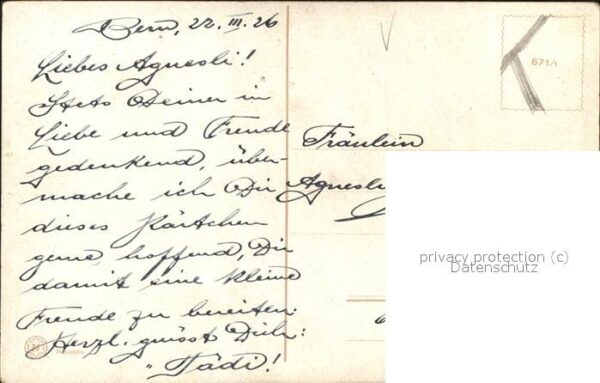 Bern, 22. III. 26
Liebes Agnesli!
Stets Deiner in
Liebe und Freude
gedenkend, über-
mache ich Dir
dieses Kärtchen
gerne hoffend, Dir
damit eine kleine
Freude zu bereiten.
Herzl. grüsst Dich:
"Tädi!
Fräulein
Agnesli
671/1
privacy protection (c)
Datenschutz
Novitas